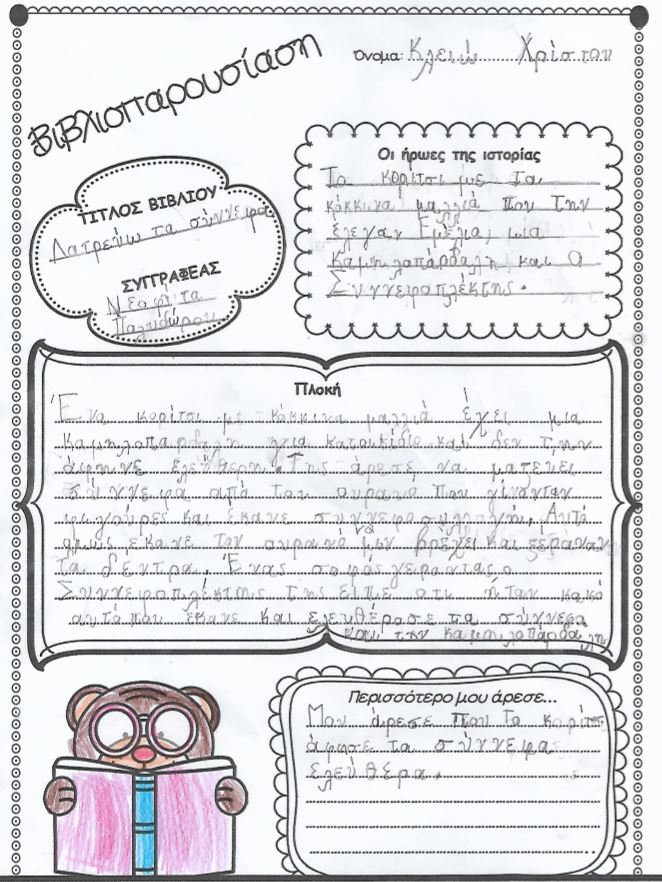 Βιβλιοπαρουσίαση
Όνομα: Κλειώ Χρίστου
ΤΙΤΛΟΣ ΒΙΒΛΙΟΥ
Λατρεύω τα σύννεφα
ΣΥΓΓΡΑΦΕΑΣ
Νεφρίτα
Παλυδώρου
Οι ήρωες της ιστορίας
Το κορίτσι με τα
κόκκινα μαλλιά που την
έλεγαν Εμέλια, μία
καμηλοπάρδαλη και ο
Συννεφοπλέκτης.
Πλοκή
Ένα κορίτσι με κόκκινα μαλλιά έχει μια
καμηλοπάρδαλη για κατοικίδιο και δεν την
άφηνε ελεύθερη. Της άρεσε να μαζεύει
σύννεφα από τον ουρανό που γίνονταν
φιγούρες και έκανε συννεφοσυλλογή. Αυτό
όμως έκανε τον ουρανό να μην βρέχει και ξεράνανε
τα δέντρα. Ένας σοφός γέροντας ο
Συννεφοπλέκτης της είπε οτι ήταν κακό
αυτό που έκανε και ελευθέρωσε τα σύννεφα
και την καμηλοπάρδαλη
Περισσότερο μου άρεσε...
Μου άρεσε που το κορίτσι
άφησε τα σύννεφα
ελεύθερα.